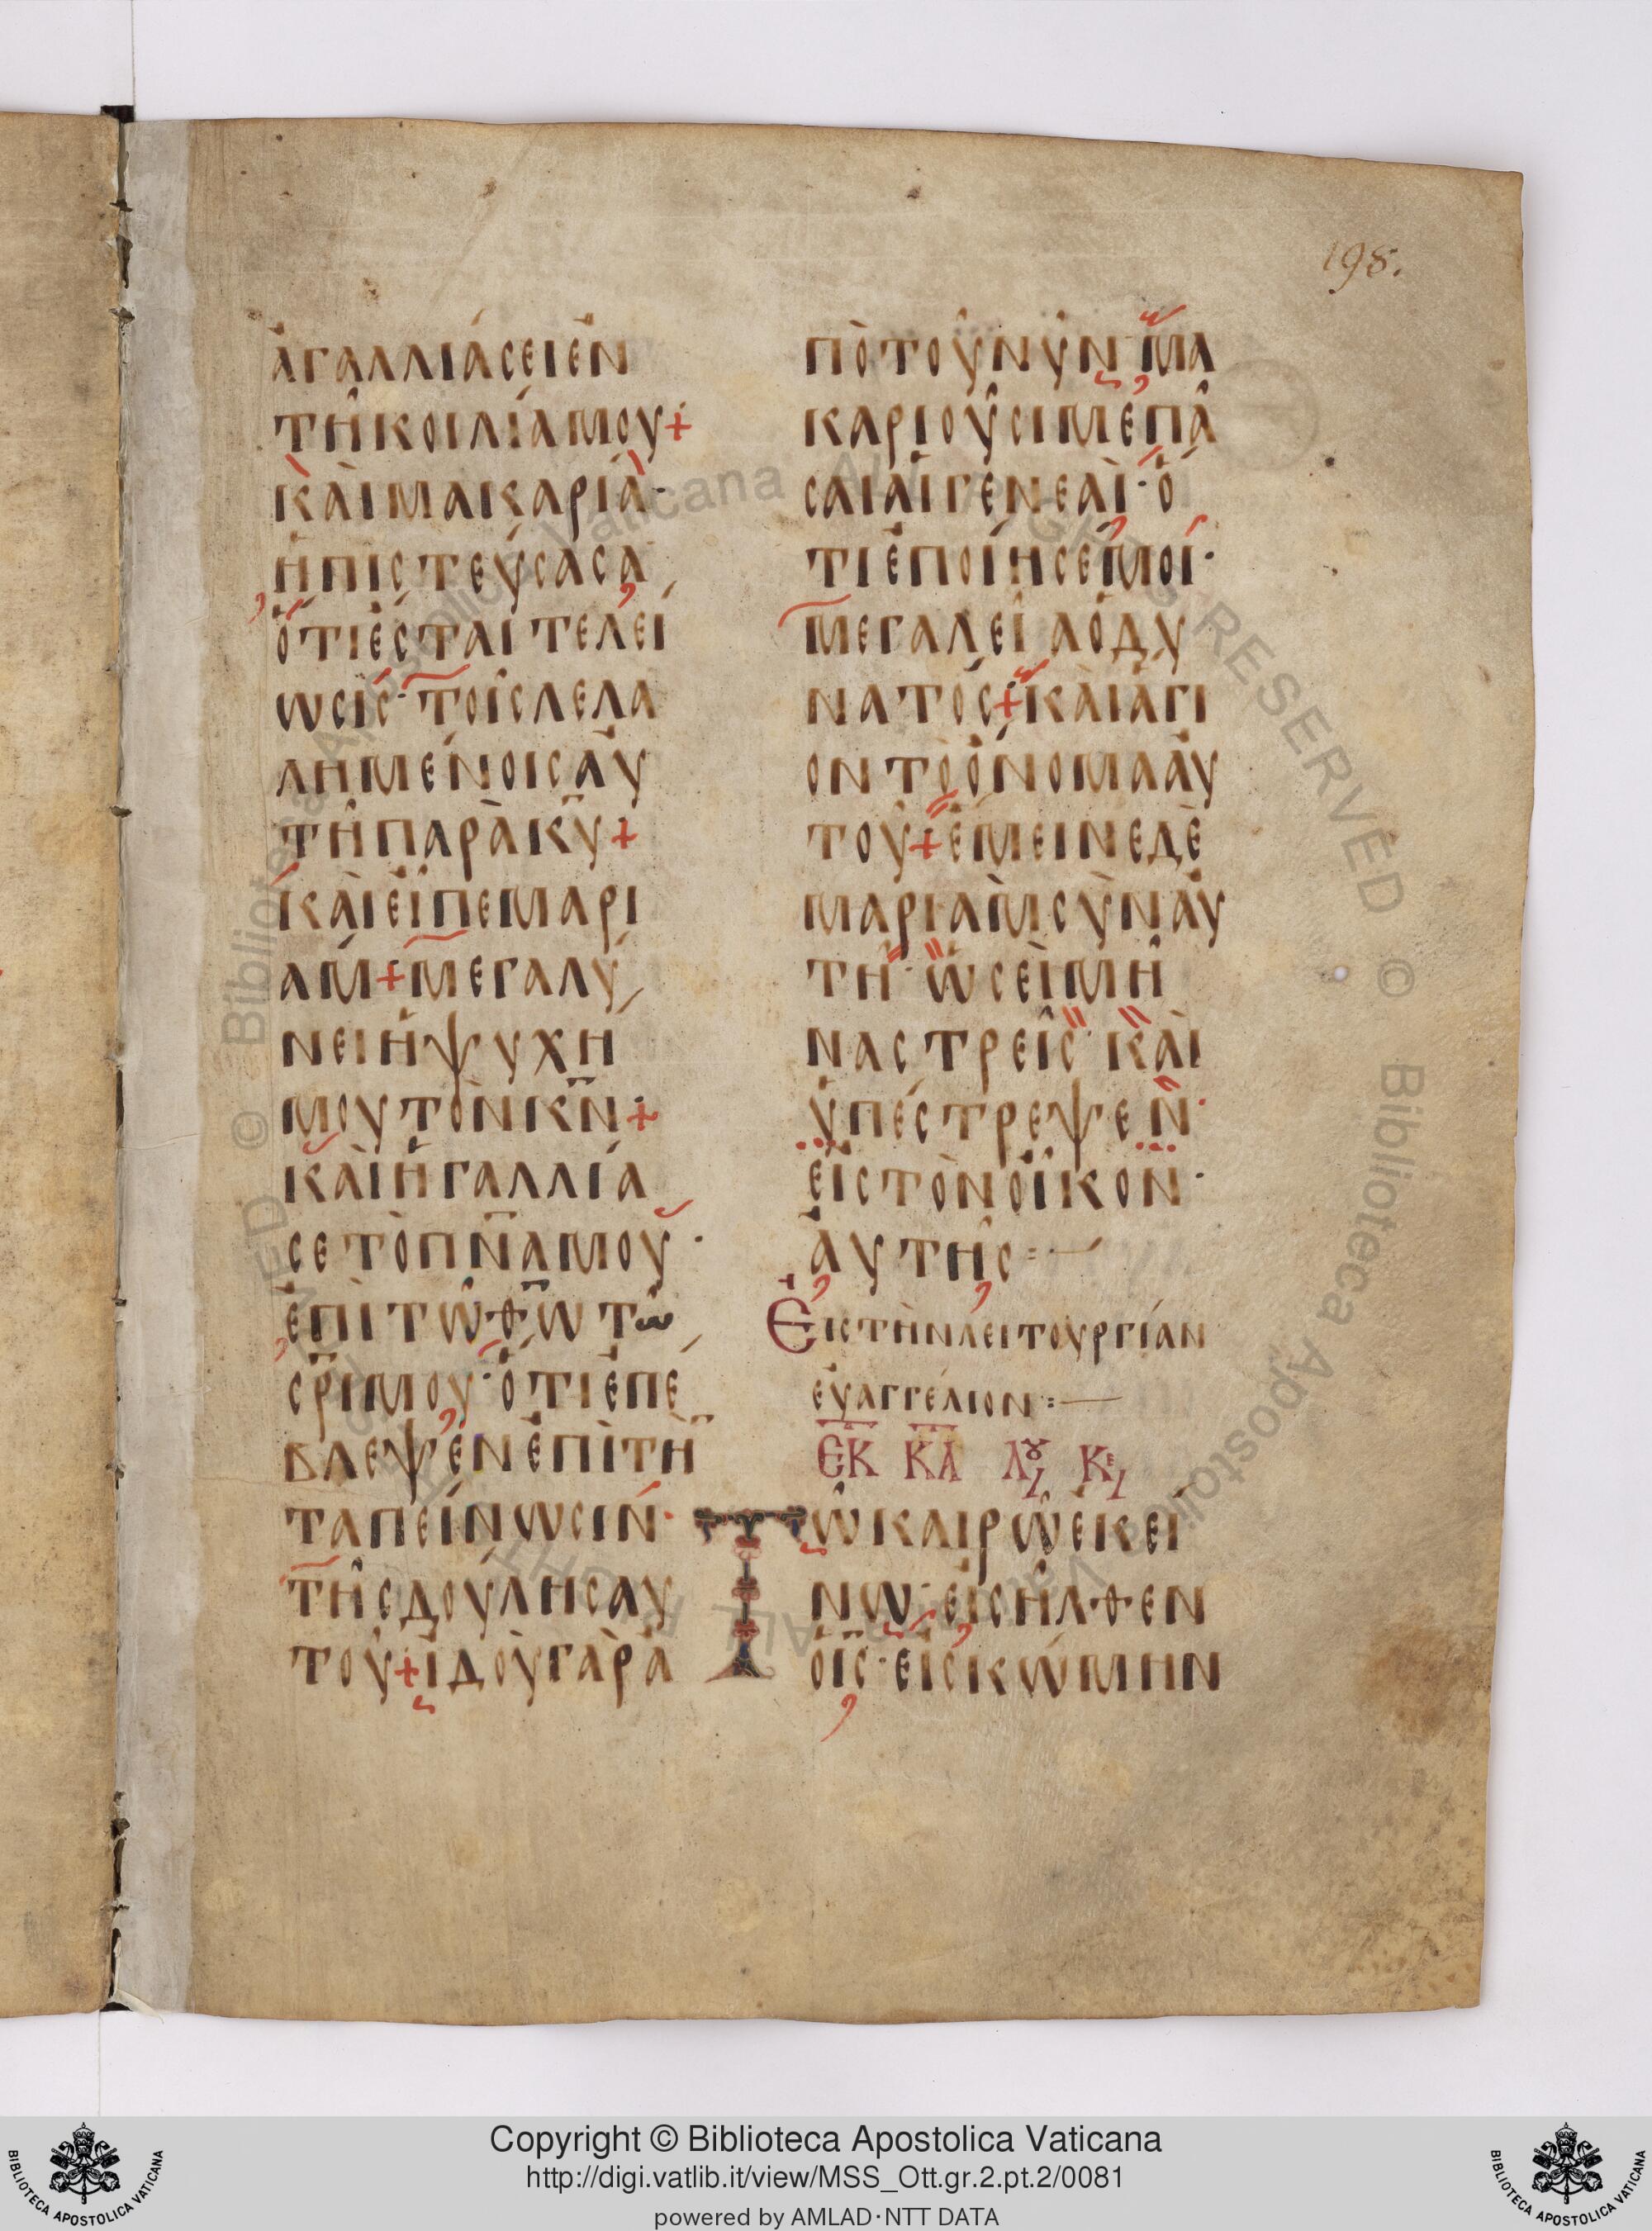 198.
ἀγαλλιάσει ἐν
τῆ κοιλία μου+
κὰι μακαριὰ·
ἡ πιστεύσασα
ὅτι ἔσται τελεί
ωσις· τοῖς λελα
λημένοις ἀυ
τῆ παρὰ κ̅υ̅+
κὰι εἶπε μαρι
άμ+ μεγαλύ
νει ἡ ψυχή
μου τὸν κ̅ν̅+
κὰι ἠγαλλία
σε τὸ π̅ν̅α̅ μου·
ἐπὶ τῶ θ̅ω̅ τω
σ̅ρ̅ι̅ μου· ὅτι ἐπέ
βλεψεν ἐπὶ τὴ̅
ταπείνωσιν·
τῆς δούλης αυ
τοῦ+ ἰδοὺ γὰρ ἀ
πὸ τοῦ νῦν· μα
καριοῦσί με πᾶ
σαι αἱ γενεαὶ· ὅ
τι ἐποίησέ μοι·
μεγαλεῖα ὁ δυ
νατός+ κὰι ἅγι
ον τὸ ὄνομα ἀυ
τοῦ+ ἔμεινε δὲ
μαριὰμ σὺν ἀυ
τῆ· ὡσεὶ μῆ
νας τρεῖς· κὰι
ὑπέστρεψεν·
εἰς τὸν οἶκον·
ἀυτῆς:—
Εἰς τὴν λειτουργίαν
ἐυαγγέλιον:—
ΕΚ ΚΛ ΛΟΥ ΚΕ
Τῶ καιρῶ ἐκεί
νω· εἰσῆλθεν
ὁ ι̅ς̅· εἰς κώμην
Copyright © Biblioteca Apostolica Vaticana
http://digi.vatlib.it/view/MSS_Ott.gr.2.pt.2/0081
powered by AMLAD·NTT DATA
BIBLIOTECA APOSTOLICA VATICANA
BIBLIOTECA APOSTOLICA VATICANA